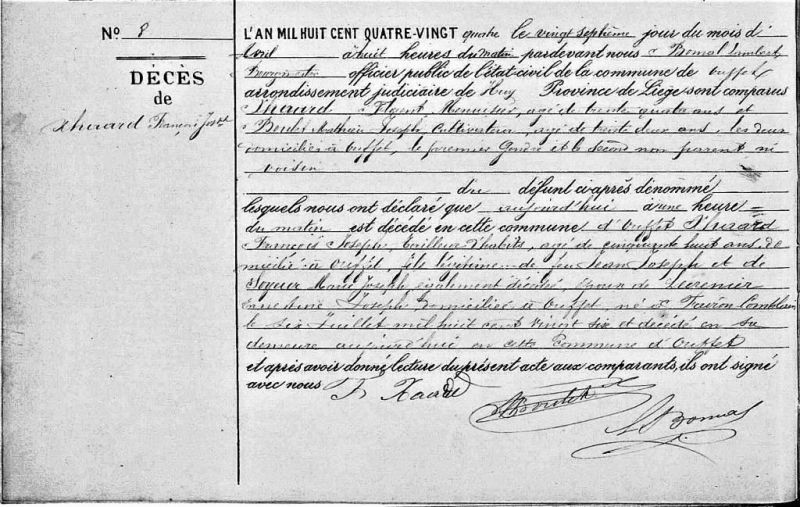 No 8
DÉCÈS
de
Xhaard François Josph
L'AN MIL HUIT CENT QUATRE-VINGT quatre le vingt septième jour du mois d'
Avril à huit heures du matin pardevant nous Bomal Lambert
Bourgmestre officier public de l'état-civil de la commune de Ouffet
arrondissement judiciaire de Huy Province de Liège sont comparus
Xhaard Florent Menuisier, agé de trente quatre ans et
Mathieu Joseph Cultivateur, agé de trente deux ans, les deux
domiciliés à Ouffet, le premier Gendre et le second non parent, ni
voisin
du défunt ci-après dénommé
lesquels nous ont déclaré que aujourd'hui à une heure
du matin est décédé en cette commune d'Ouffet Xhaard
François Joseph, tailleur d'habits, agé de cinquante huit ans, do
micilié à Ouffet, fils légitime de feu Jean Joseph et de
Marie Joseph, également décédés, Epoux de
Joseph domiciliée à Ouffet, né à
le six Juillet mil huit cent vingt six et décédé en sa
demeure aujourd'hui en cette Commune d'Ouffet
et après avoir donné lecture du présent acte aux comparants, ils ont signé
avec nous F Xaard
Bomal